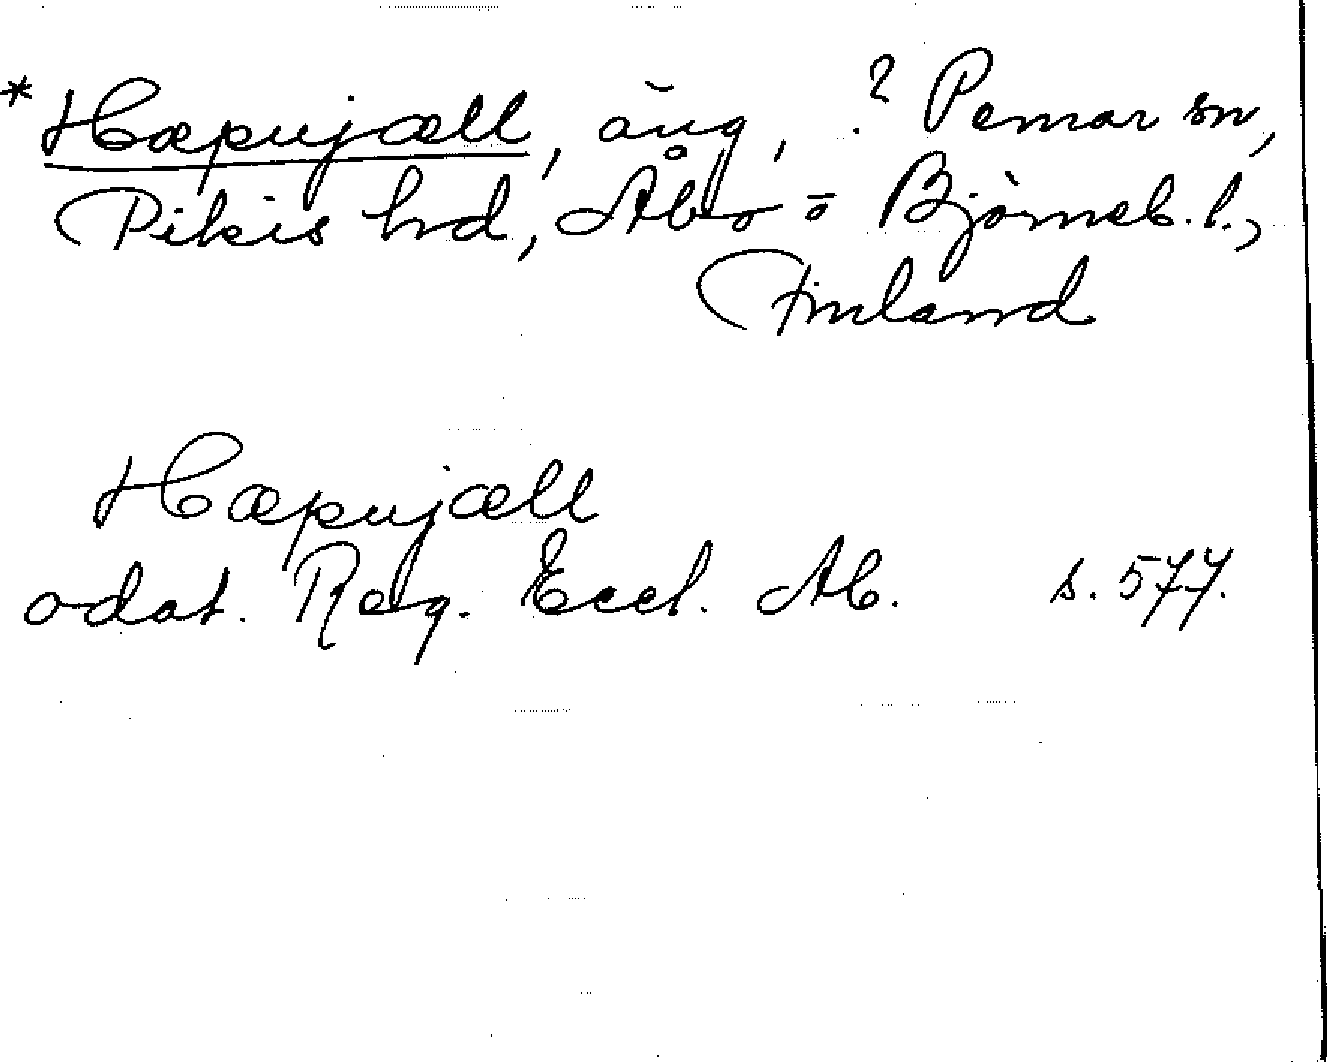 *Hæpujæll, äng, ? Pemar sn,
Pikis hd, Åbo = Björneb. l.,
Finland
Hæpujæll
odat. Reg. Eccl. Ab. s. 577.